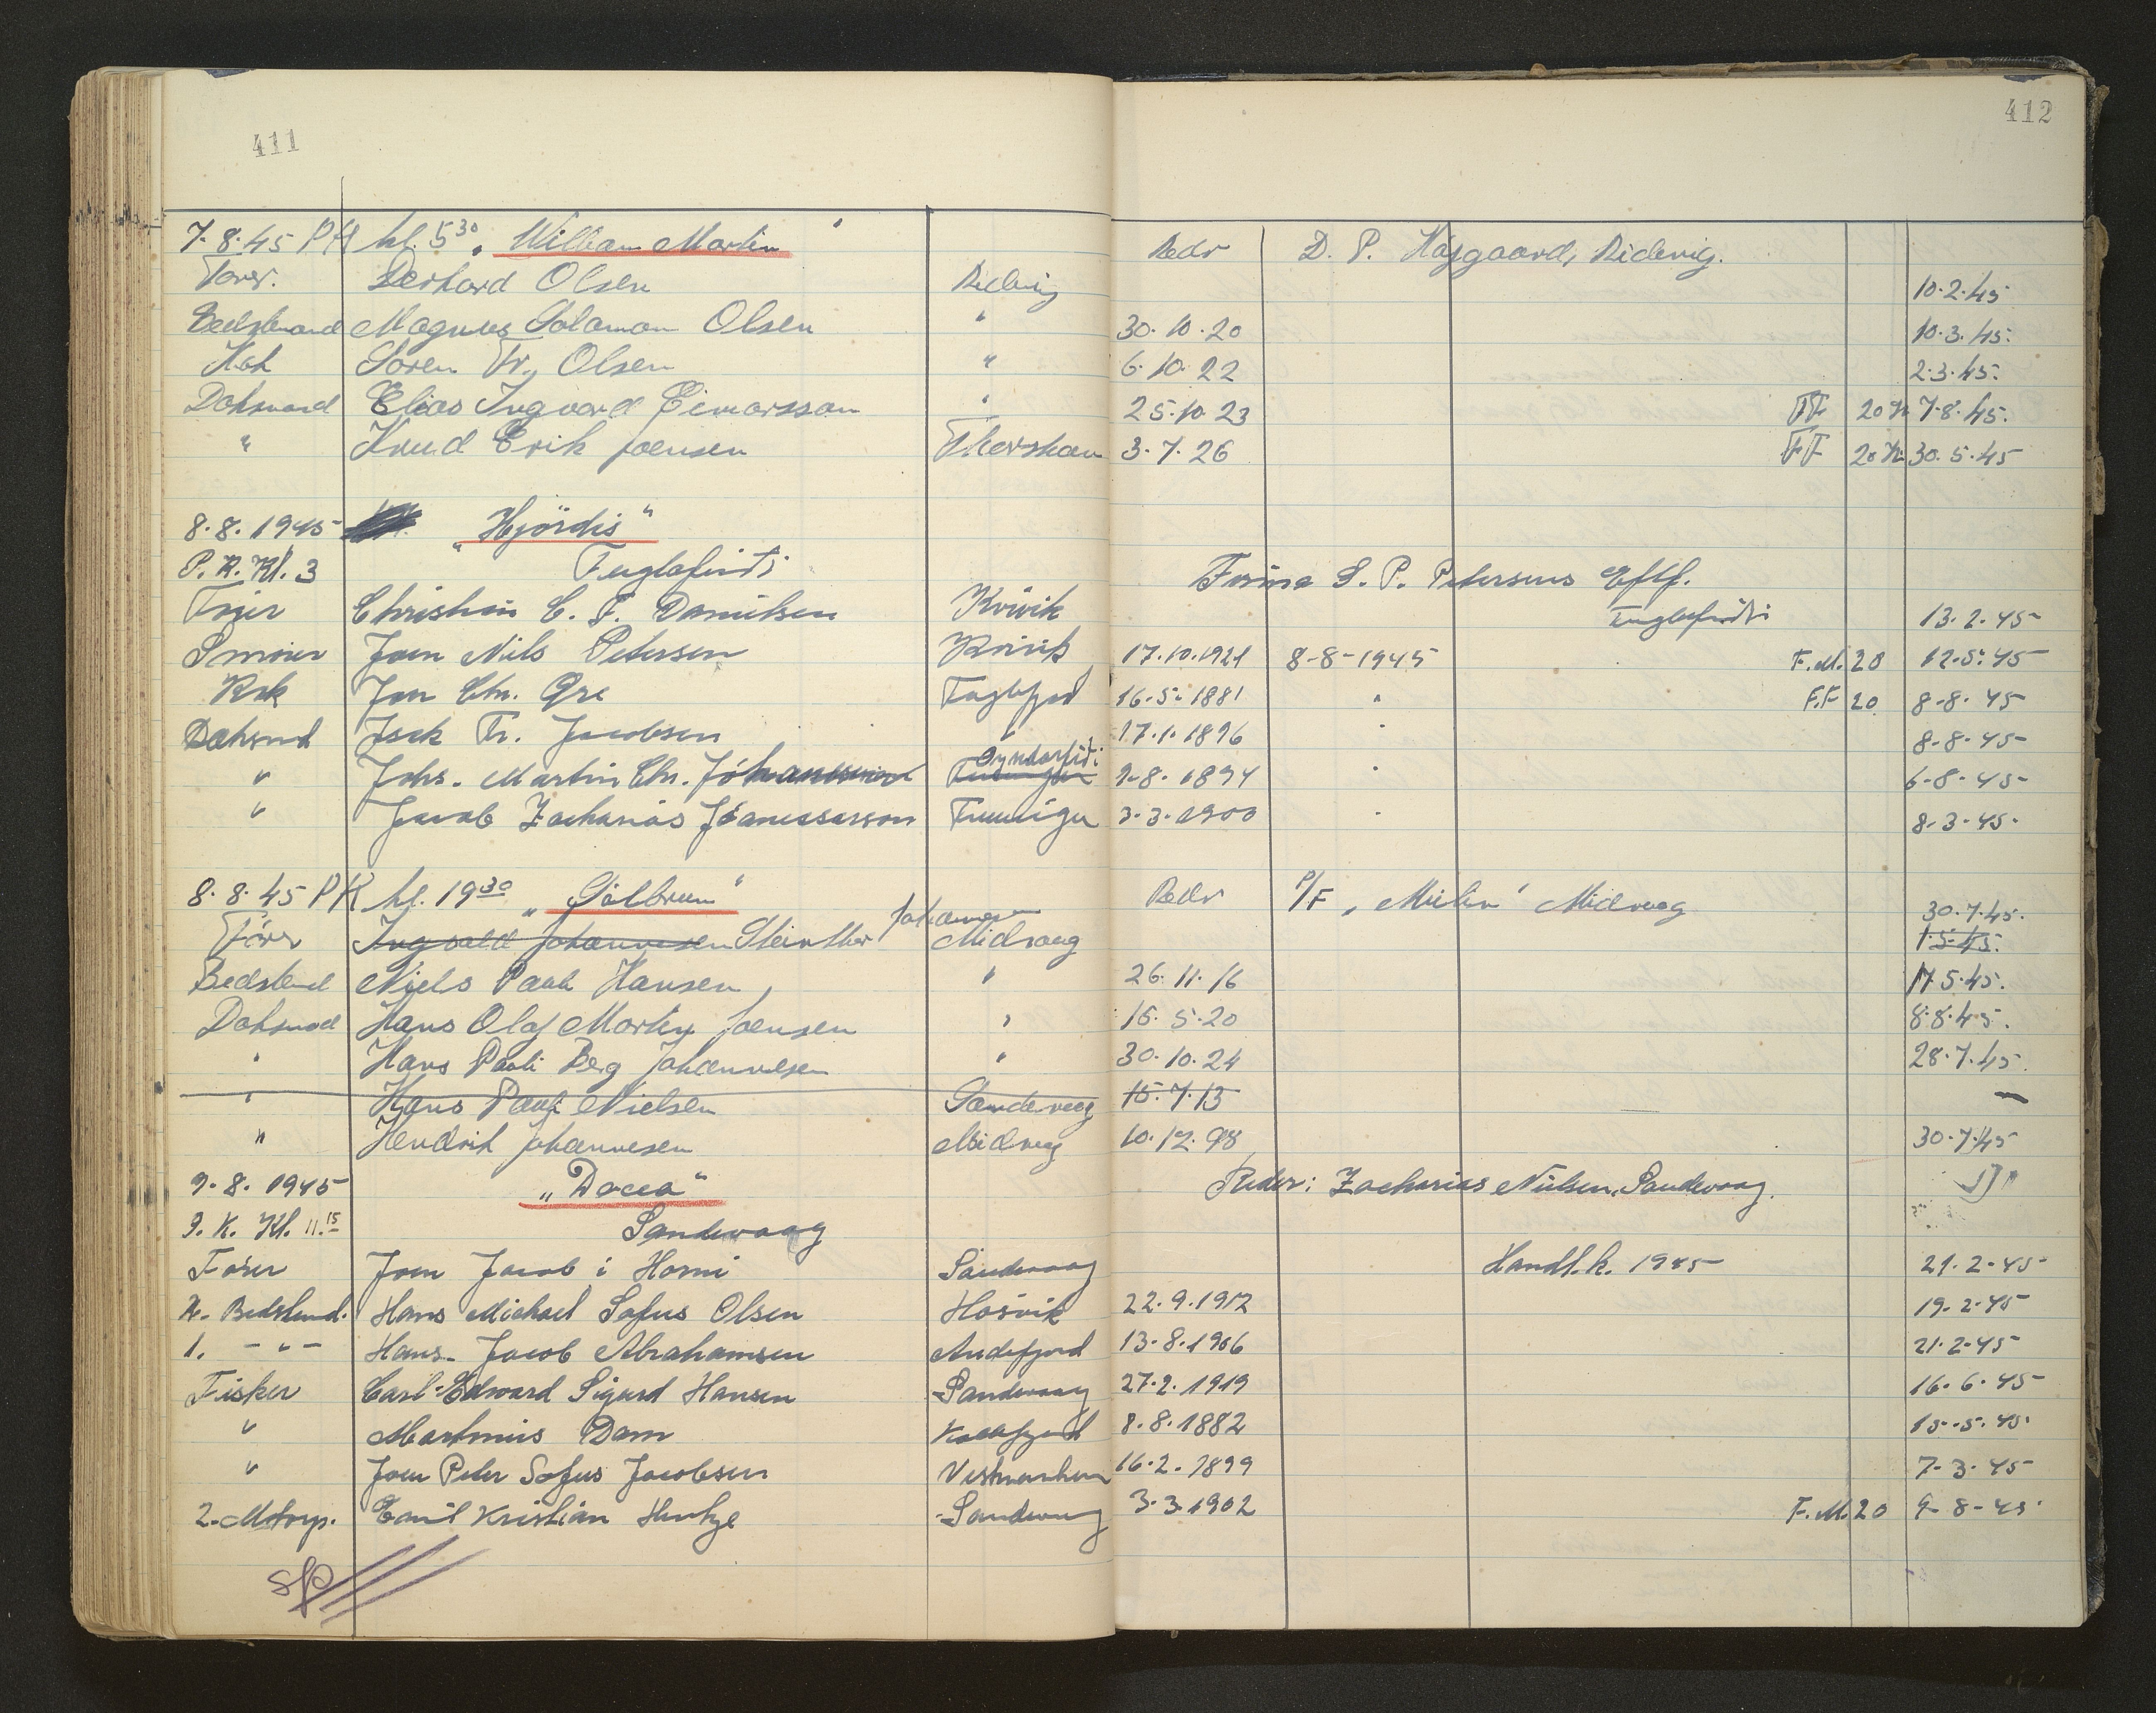 411
412
7.8.45 PK kl. 5³⁰ „William Martin" Redr D. P. Højgaard, Ridevig.
Förer. Olsen Ridevig 10.2.45
Bedstemand Magnus Solomon Olsen " 30.10.20 10.3.45.
Kok Sören Fr. Olsen " 6.10.22 2.3.45.
Doksmand Elias Ingvard " 25.10.23 FF 20 Kr 7.8.45.
" Knud Erik Joensen Thorshavn 3.7.26 FF 20 Kr 30.5.45
8.8.1945 „Hjördis"
P.K. Kl. 3 Fuglafirdi Firma S. P. Petersens Eftf.
Fuglefirdi
Förer Christian C. F. Danielsen Kvivik 13.2.45
Smörer Joen Niels Petersen Kvivik 17.10.1921 8-8-1945 F.M. 20 12.5.45
Kok Jon Chr. Fuglefjord 16.5.1881 " F.F 20 8-8-45
Doksmd Isak Fr. Jacobsen " 17.1.1896 " 8-8-45
" Johs. Martin Chr. Jóhannesson Oyndarfirdi 9-8.1894 " 6-8-45
" Jacob Zacharias Funnigur 3.3.1900 " 8-3-45.
8.8.45 PK kl. 19³⁰ „Sólbrún" Redr P/F Midvaag 30.7.45.
Förer Ingvald Johannesen Johannesen Midvaag 1.5.45.
Bedstemd Niels Pauli Hansen " 26.11.16 17.5.45.
Doksmd Hans Olaf Morten Joensen " 15.5.20 8.8.45.
" Hans Pauli Berg Johannesen " 30.10.24 28.7.45.
" Hans Pauli Nielsen Sandevaag 15.7.13 —
" Hendrik Johannesen Midvaag 10.12.98 30.7.45
9.8.1945 „Docea" Reder: Zacharias Nielsen, Sandevaag.
P.K. Kl. 11.¹⁵ Sandevaag
Förer Joen Jacob i Horni Sandevaag Handl.k. 1945 21.2.45
Bedstemd. Hans Michael Sofus Olsen Hosvik 22.9.1912 19.2.45
1. -"- Hans Jacob Abrahamsen Andefjord 13.8.1906 21.2.45
Fisker Carl Edward Sigurd Hansen Sandevaag 27.2.1919 16.6.45
" Martinus Dam 8.8.1882 15.5.45.
" Joen Peter Sofus Jacobsen Vestmanhavn 16.2.1899 7-3-45
2. Motorp. Emil Kristian Hentze Sandevaag 3.3.1902 F.M. 20 9-8-45